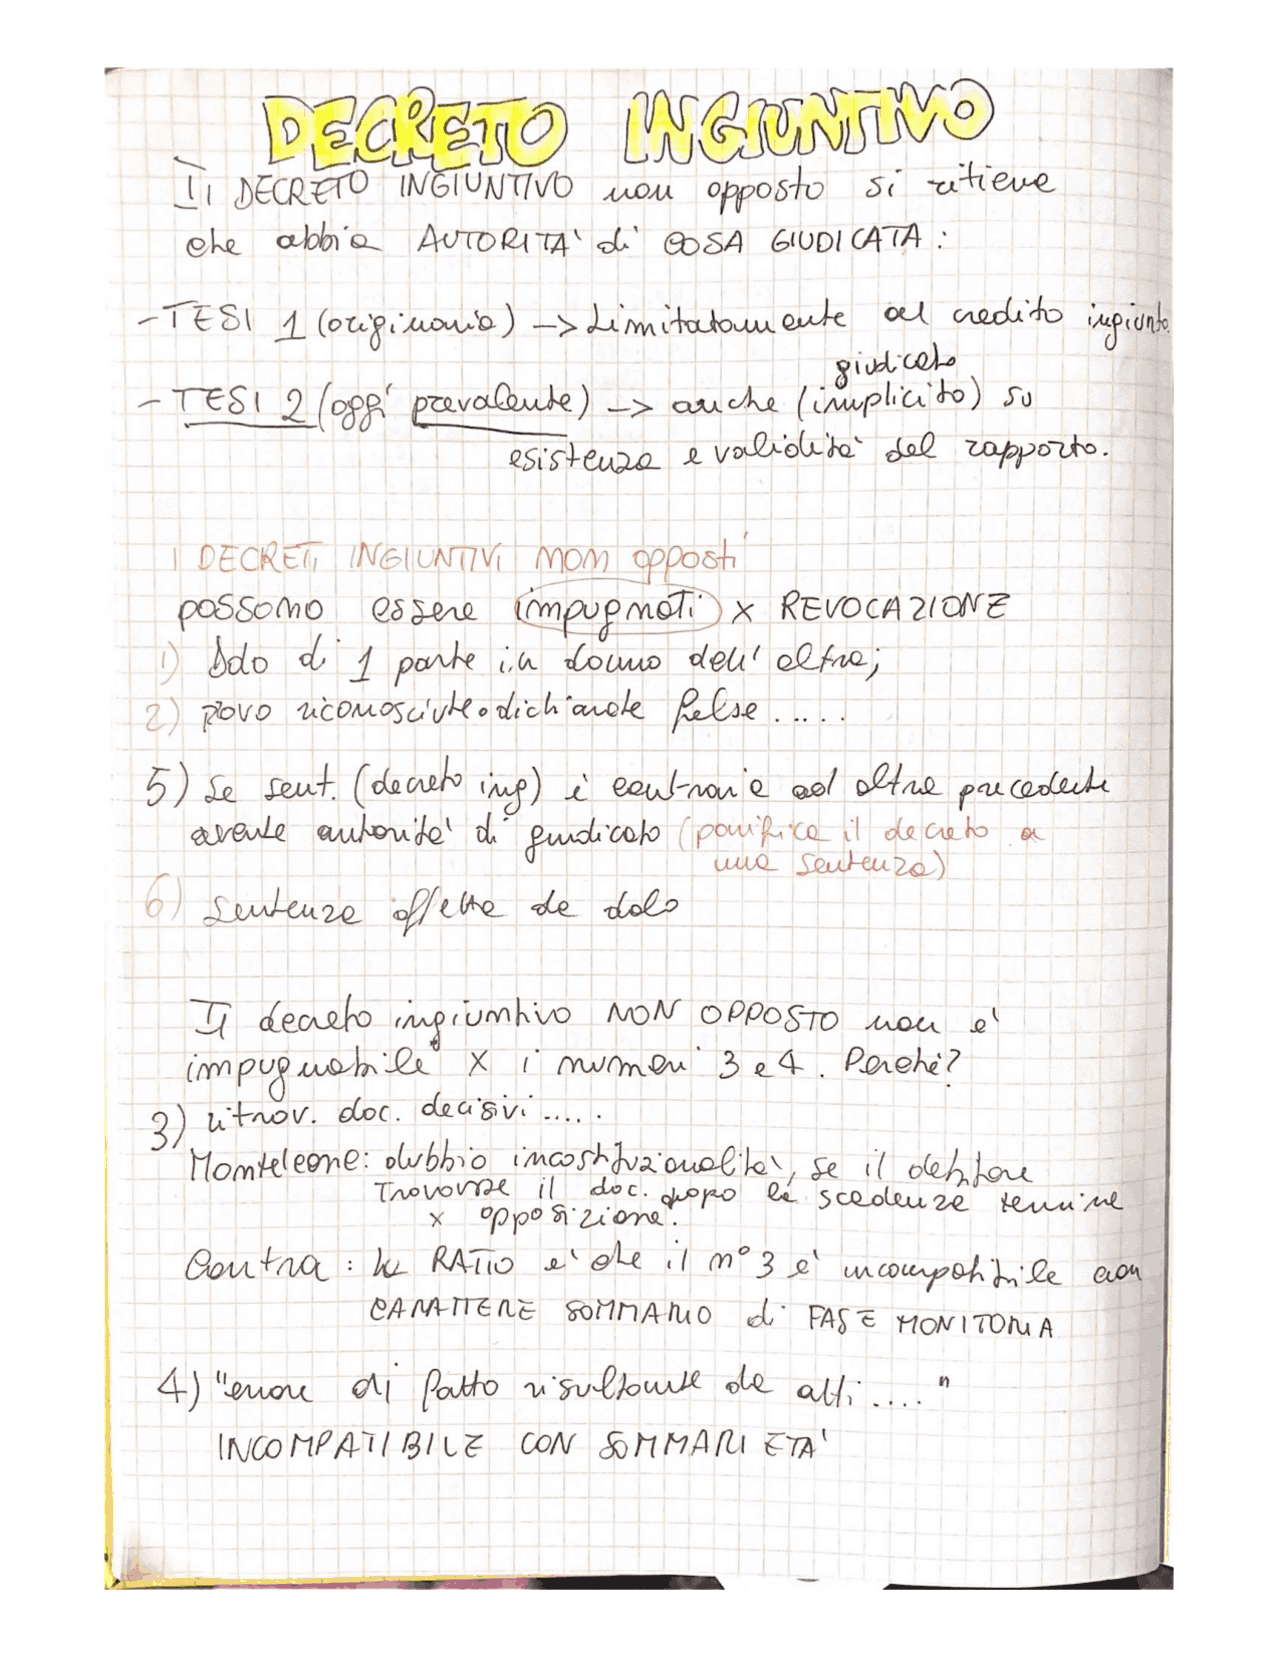 DECRETO INGIUNTIVO
Il DECRETO INGIUNTIVO non opposto si ritiene
che abbia AUTORITA' di COSA GIUDICATA :
- TESI 1 (originaria) -> Limitatamente al credito ingiunto.
giudicato
- TESI 2 (oggi prevalente) -> anche (implicito) su
esistenza e validità del rapporto.
I DECRETI INGIUNTIVI non opposti
possono essere impugnati x REVOCAZIONE
1) Dolo di 1 parte in danno dell'altra;
2) prove riconosciute o dichiarate false .....
5) se sent. (decreto ing) è contraria ad altra precedente
avente autorità di giudicato (panifica il decreto a
una sentenza)
6) sentenza affetta da dolo
Il decreto ingiuntivo NON OPPOSTO non e'
impugnabile x i numeri 3 e 4. Perché?
3) ritrov. doc. decisivi .....
Monteleone: dubbio incostituzionalità, se il debitore
Trovasse il doc. dopo la scadenza termine
x opposizione.
Contra : la RATIO e' che il n° 3 e' incompatibile con
CARATTERE SOMMARIO di FASE MONITORIA
4) "errore di fatto risultante da atti ...."
INCOMPATIBILE CON SOMMARIETA'